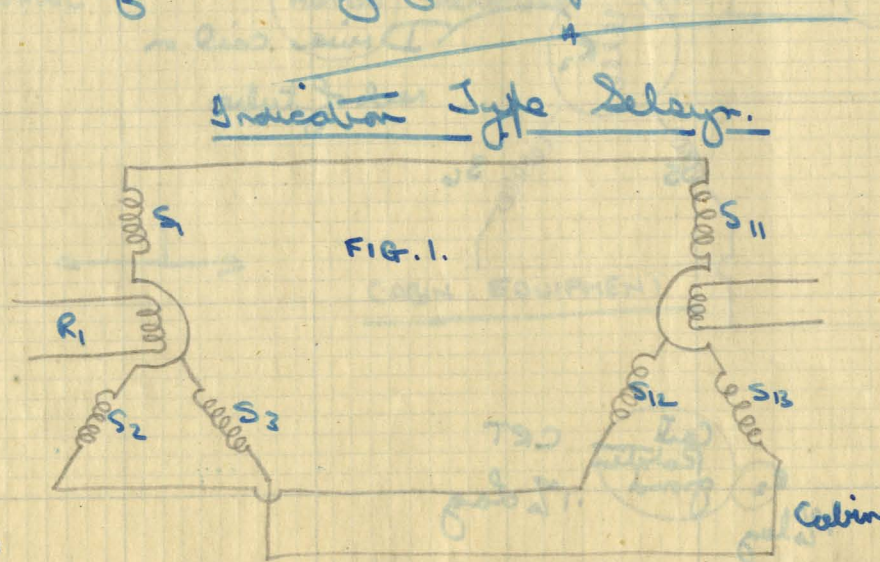 Indication Type Selsyn.
S1
S11
FIG.1.
R1
S2
S3
S12
S13
Cabin